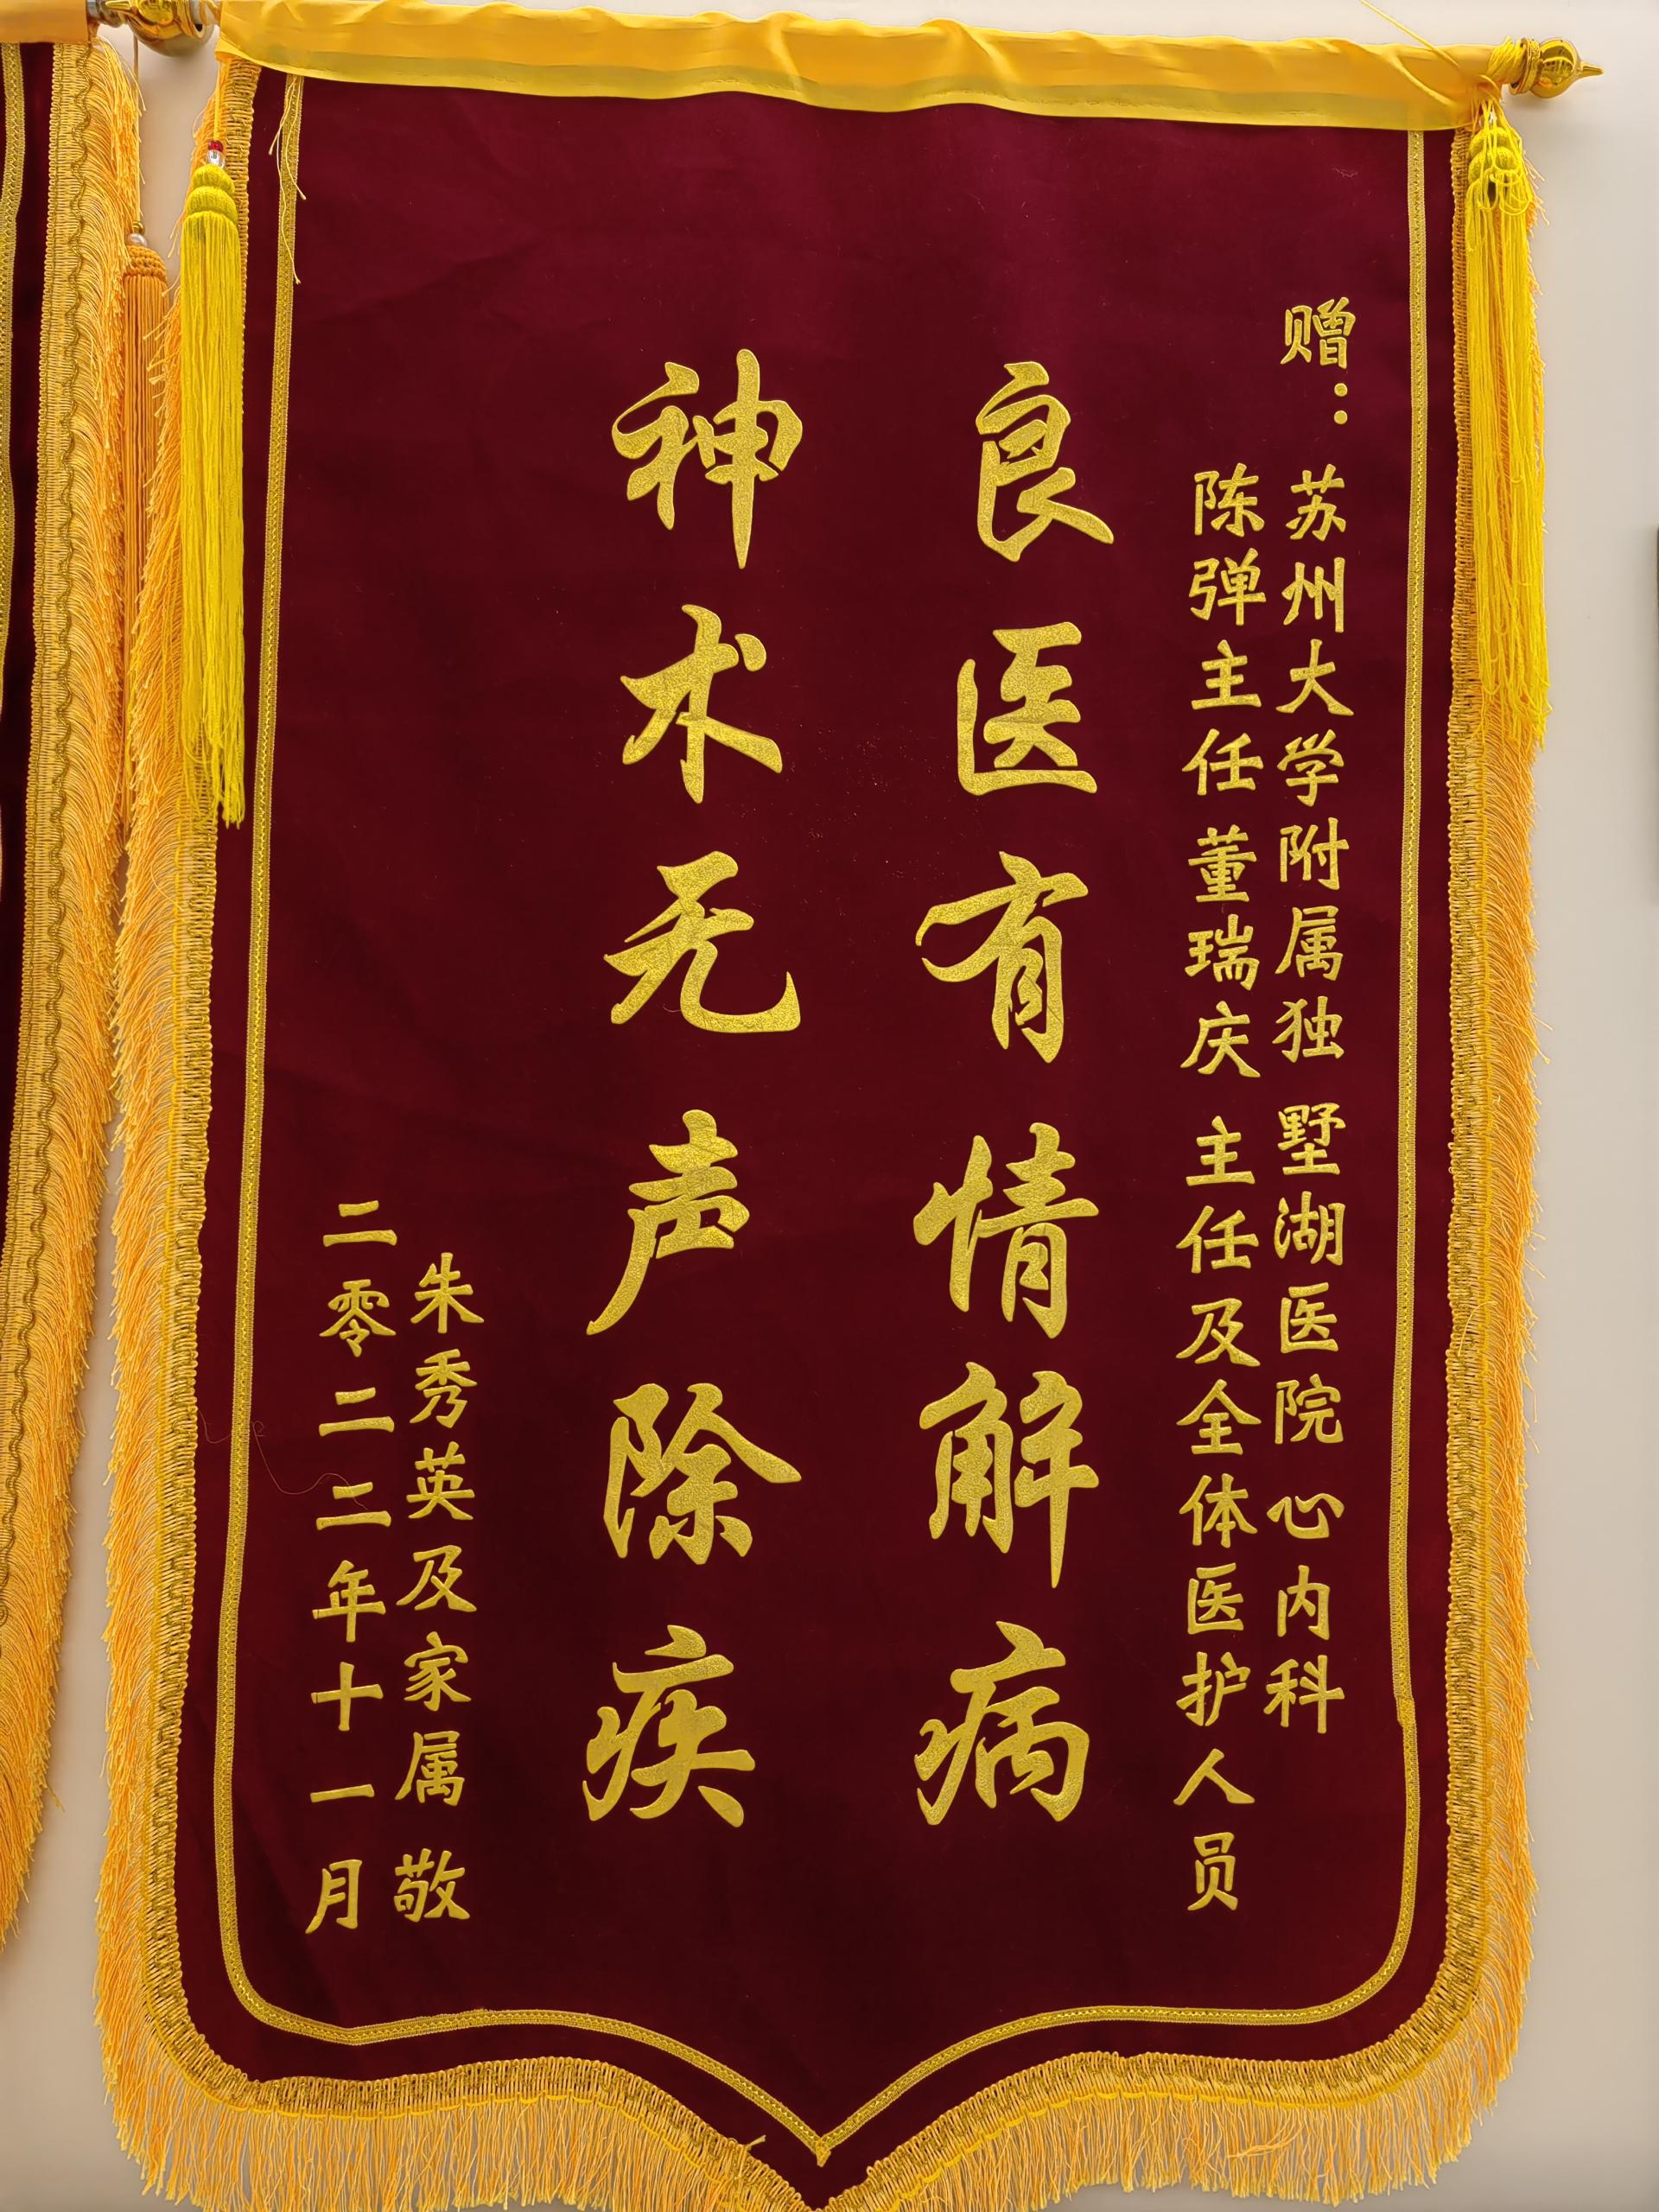 赠：苏州大学附属独墅湖医院心内科
陈弹主任 董瑞庆 主任及全体医护人员
良医有情解病
神术无声除疾
朱秀英及家属 敬
二零二二年十一月